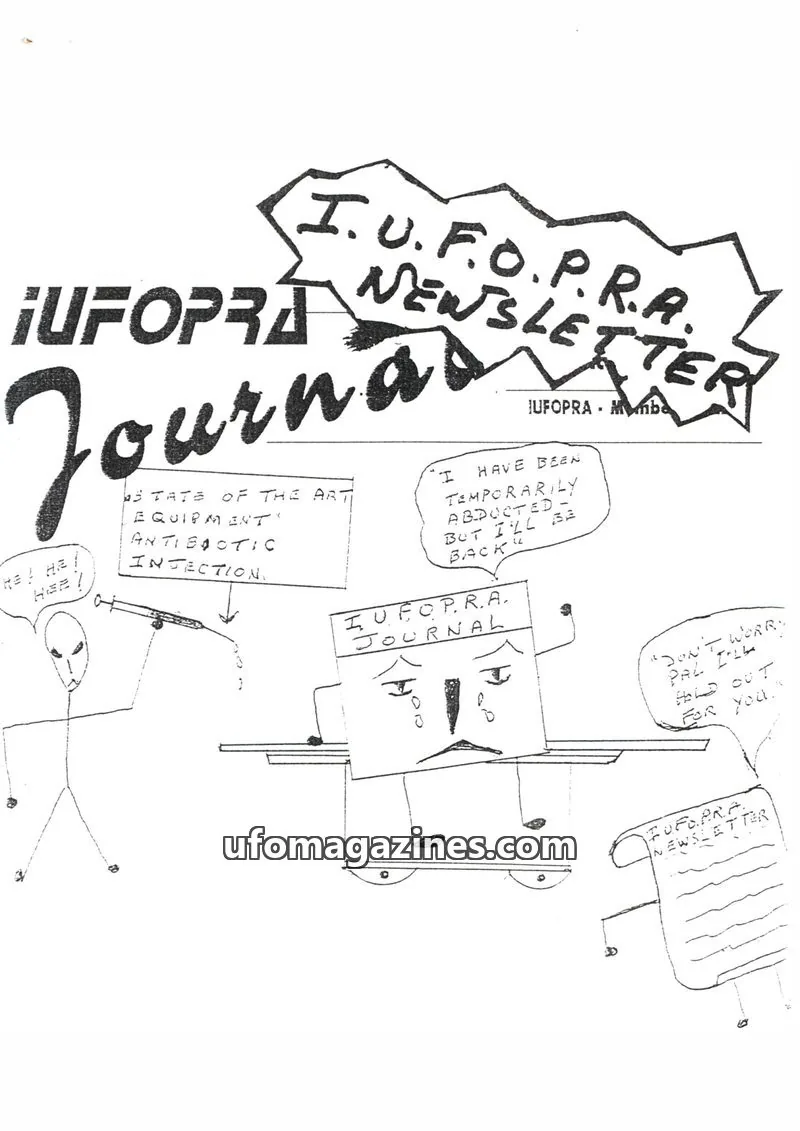 I.U.F.O.P.R.A.
NEWSLETTER
iUFOPRA
Journal
IUFOPRA -
"STATE OF THE ART
EQUIPMENT"
ANTIBIOTIC
INJECTION.
"I HAVE BEEN
TEMPORARILY
ABDUCTED -
BUT I'LL BE
BACK"
HE! HE!
HEE!
I.U.F.O.P.R.A.
JOURNAL
"DON'T WORRY
PAL I'LL
HOLD OUT
FOR YOU."
I.U.F.O.P.R.A.
NEWSLETTER
ufomagazines.com